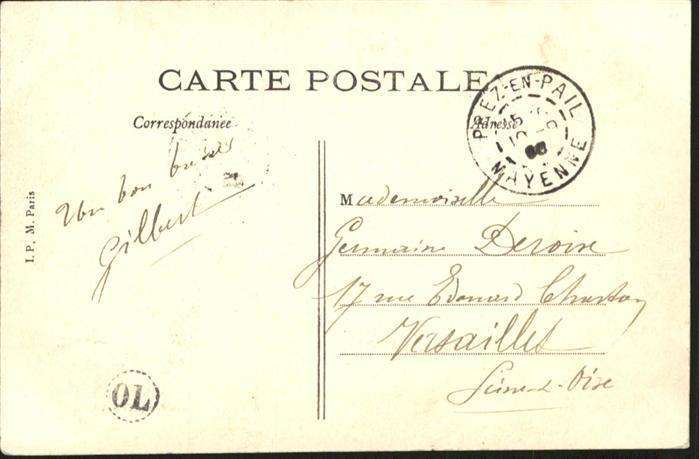 CARTE POSTALE
Correspondance
Adresse
PREZ-EN-PAIL
15
MAYENNE
Un bon baiser
Gilbert
Mademoiselle
Germaine Deroire
17 rue Edouard Charton
Versailles
Seine-&-Oise
I. P. M. Paris
OL